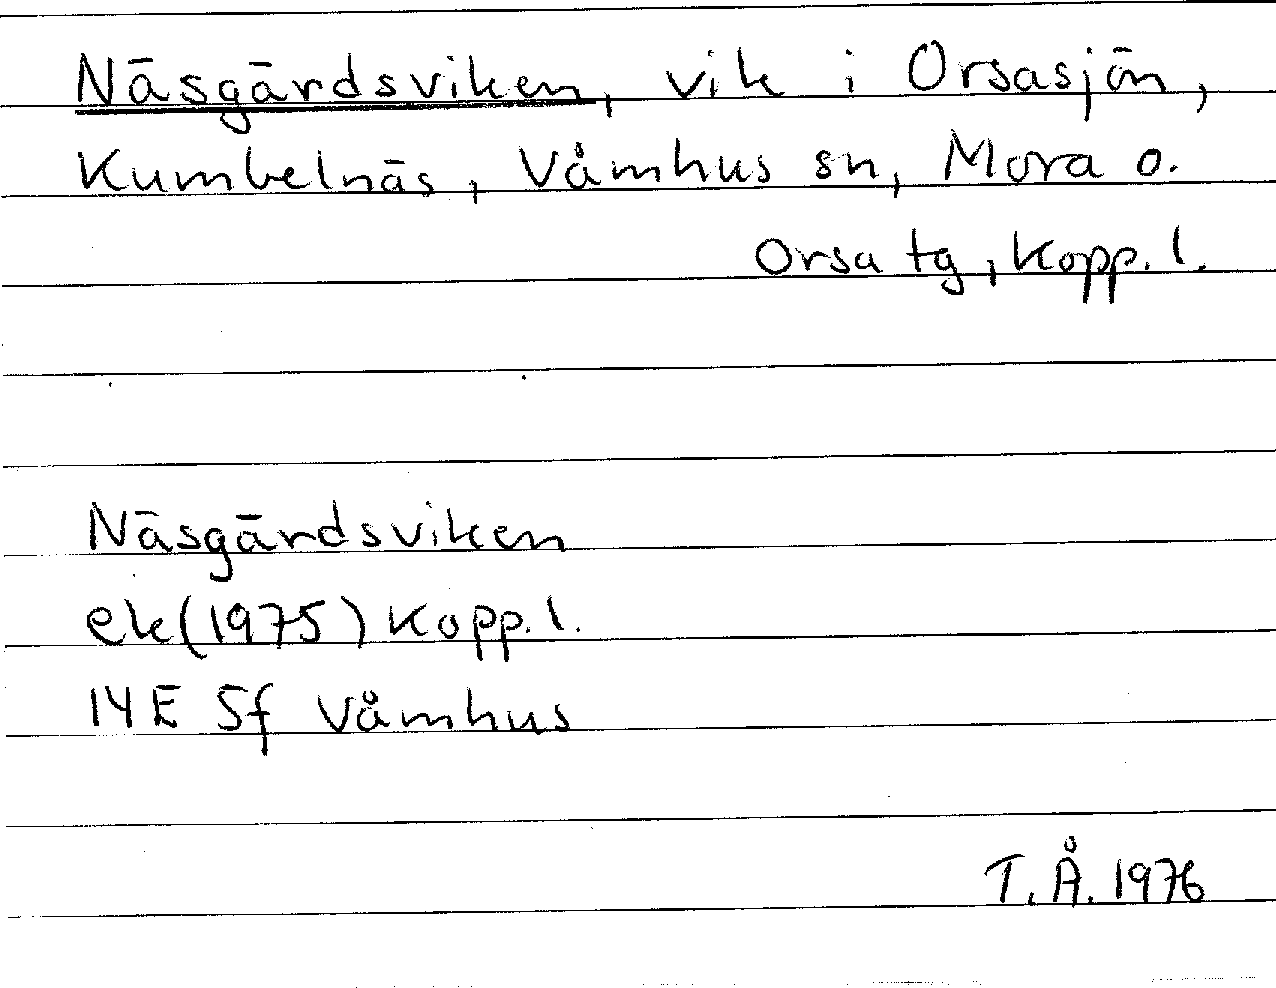 Näsgärdsviken, vik i Orsasjön,
Kumbelnäs, Våmhus sn, Mora o.
Orsa tg, Kopp. l.
Näsgärdsviken
ek(1975) Kopp. l.
14E 5f Våmhus
T. Å. 1976